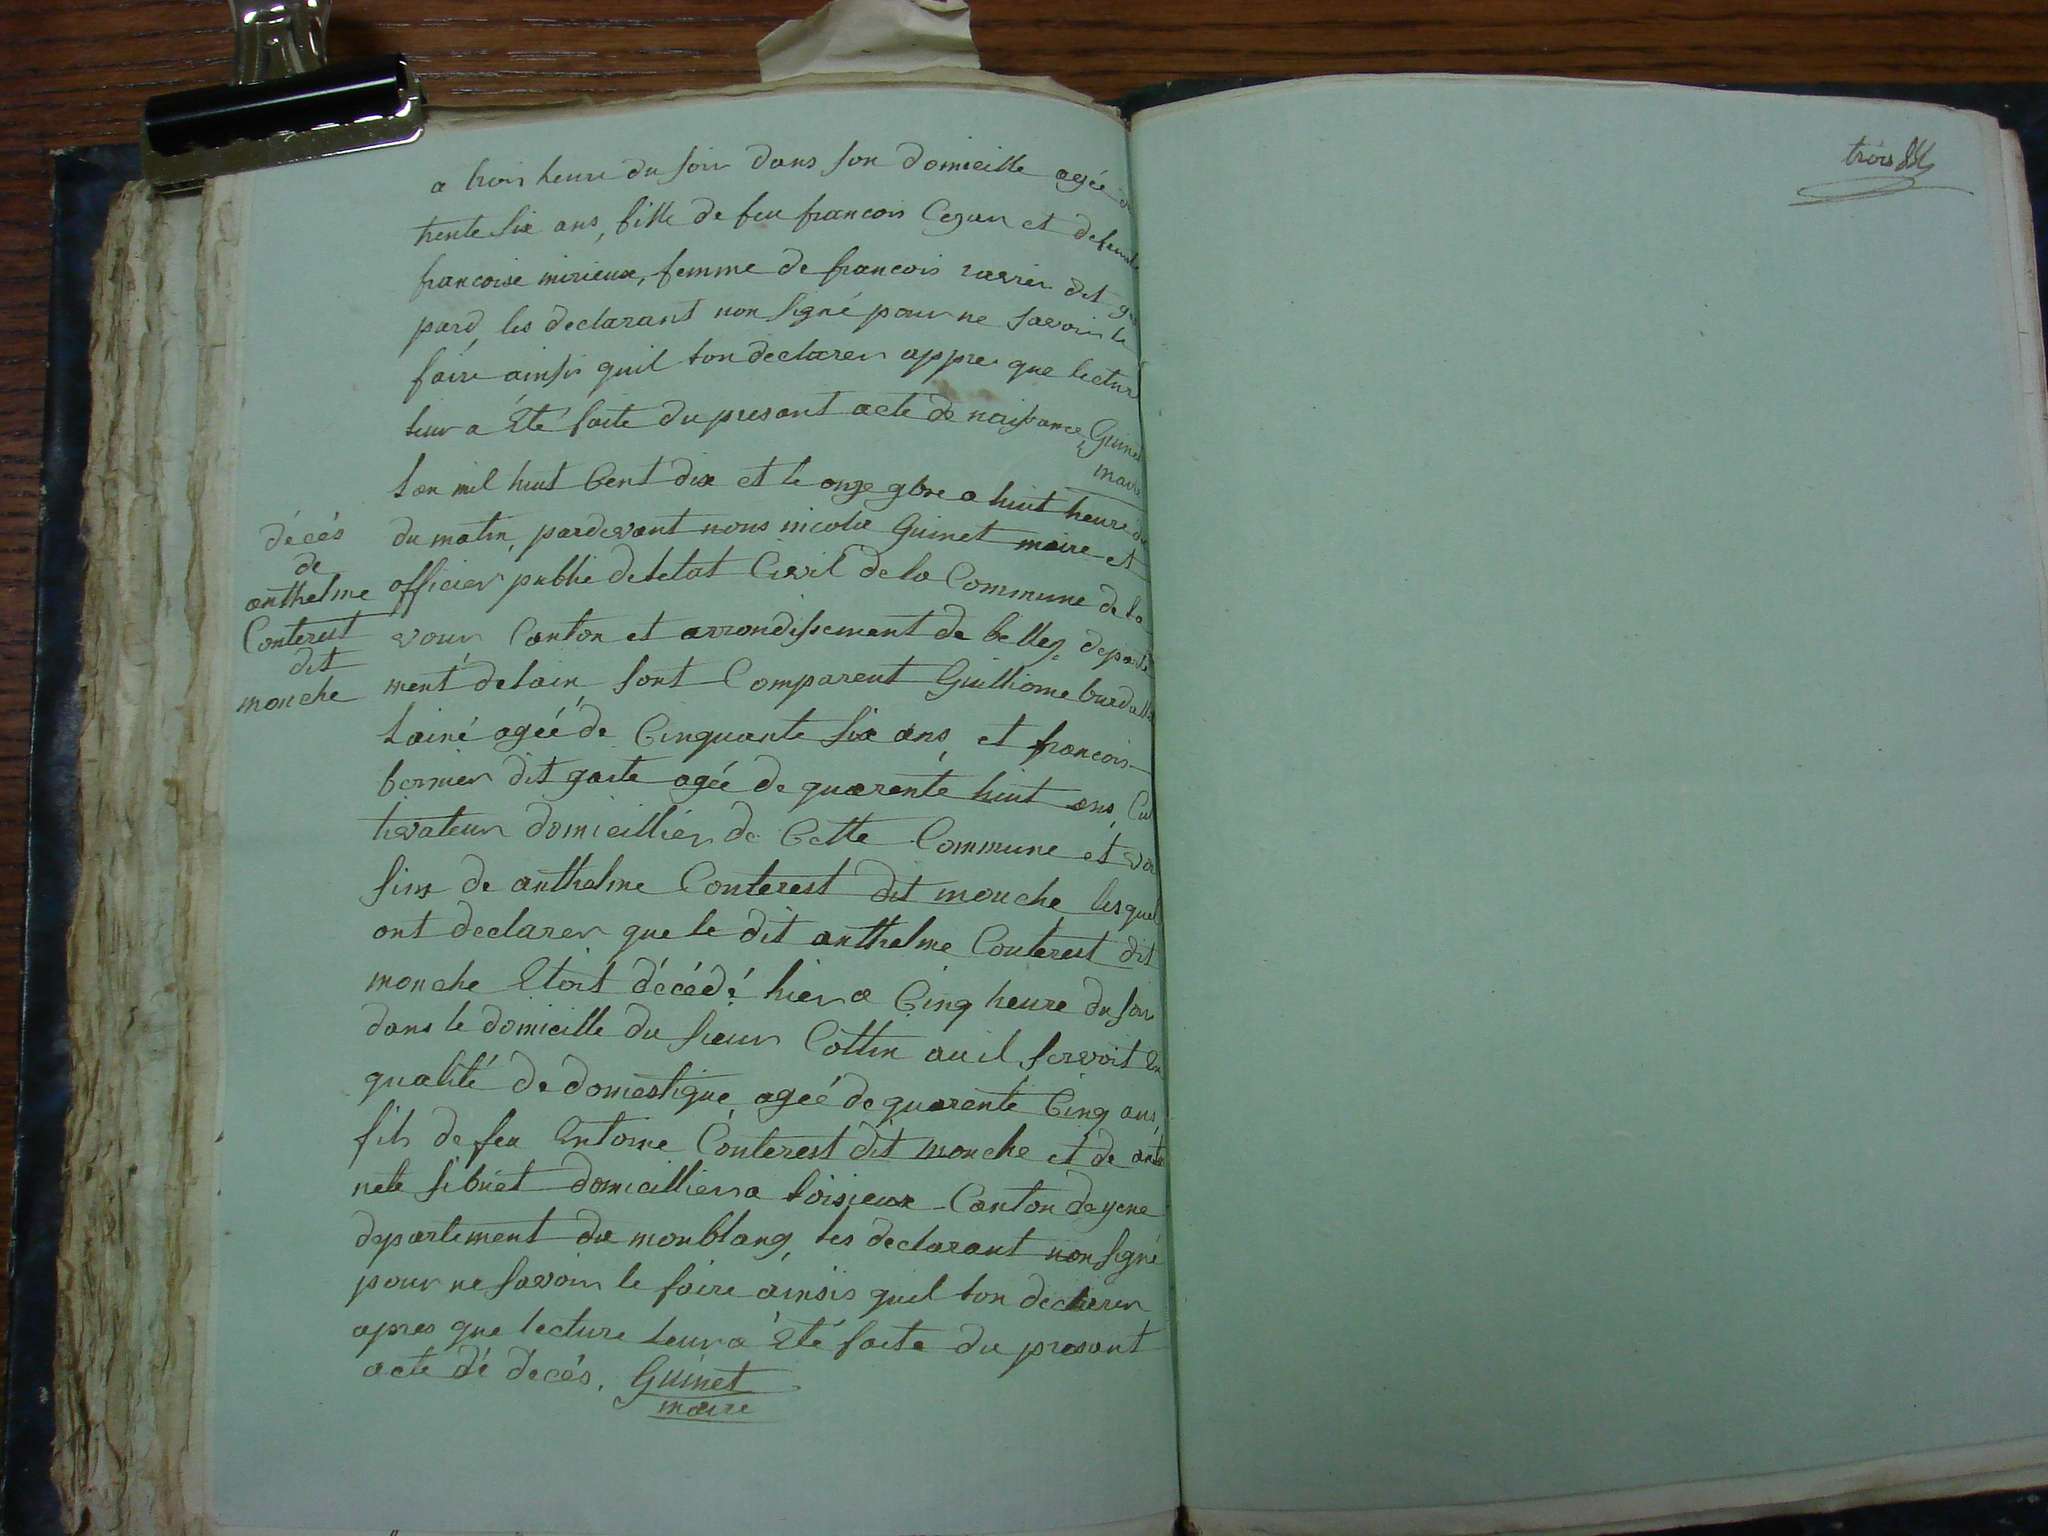 a trois heure du soir dans son domicille agée
trente six ans, fille de feu francois Cezar et defeunte
francoise mirieux, femme de francois ravier dit
pard, les declarant non signé pour ne savoir le
faire ainsis quil lon declarer appres que lectur
leur a Eté faite du presant acte de naissance, Guinet
maire
décés
de
anthelme
Conterest
dit
mouche
Lan mil huit Cent dix et le onze 9bre a huit heure
du matin, pardevant nous nicolas Guinet maire et
officier public detelat Civil de la Commune de la
vour Canton et arrondissement de belley departe
ment delain sont Comparent Guilliome burdallet
lainé ageé de Cinquante six ans, et francois
bernier dit gaite agée de quarente huit ans, Cul
tivateur domicillier de Cette Commune et voi
sins de anthelme Conterest dit mouche lesquel
ont declarer que le dit anthelme Conterest dit
mouche Etoit décédé hier a Cinq heure du soir
dans le domicille du sieur Cottin au il servoit En
qualité de domestique, ageé de quarente Cinq ans,
fils de feu Entoine Conterest dit mouche et de antoi
nete sibuet domicillier a loisieux Canton de yene
departement du monblang, les declarant non signé
pour ne savoir le faire ainsis quil lon declarer
apres que lecture leur a Eté faite du presant
acte dé decés. Guinet
maire
trois